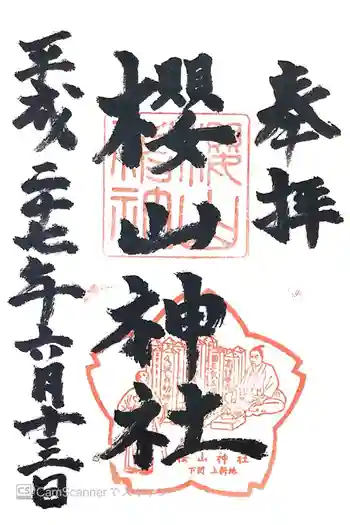 奉拝
櫻山神社
平成二十七年六月十三日
櫻山神社
下関 上新地
CS CamScanner でスキャン